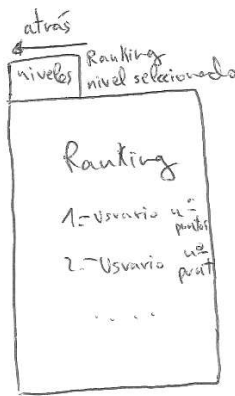 atrás
niveles
Ranking
nivel seleccionado
Ranking
1.- Usuario nº
puntos
2.- Usuario nº
punt
.....